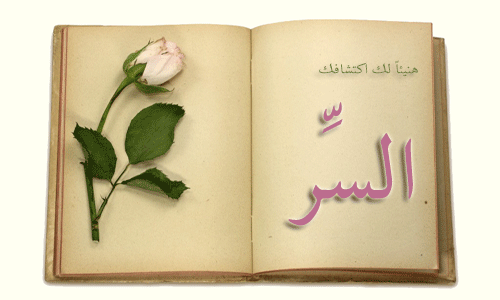 هنيئاً لك اكتشافك
السِّر